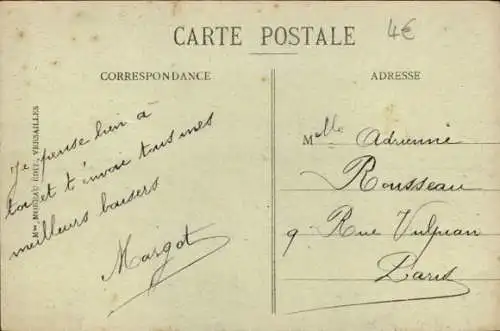 4€
CARTE POSTALE
CORRESPONDANCE
ADRESSE
Mme MOREAU ÉDIT., VERSAILLES
Je pense bien à
toi et t'envoie tous mes
meilleurs baisers
Margot
Mlle Adrienne
Rousseau
9 Rue Vulpian
Paris